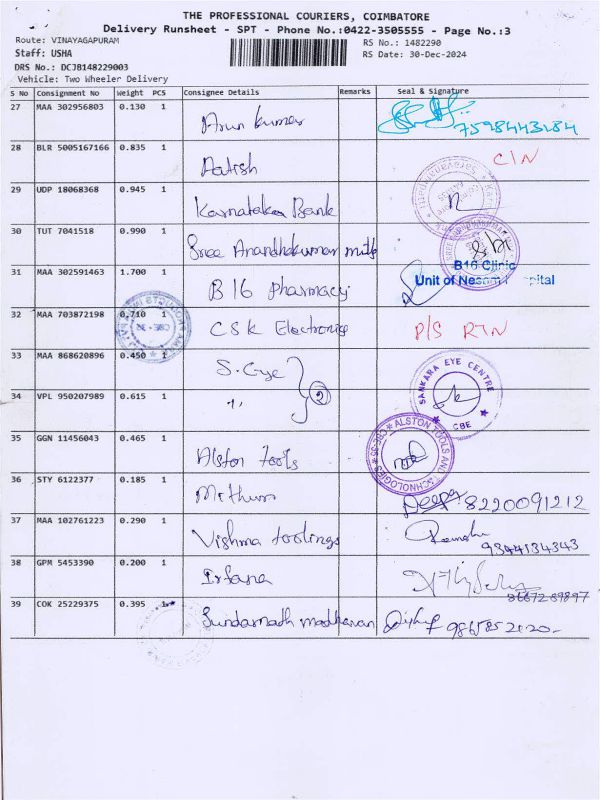 THE PROFESSIONAL COURIERS, COIMBATORE
Delivery Runsheet - SPT - Phone No.:0422-3505555 - Page No.:3
Route: VINAYAGAPURAM
RS No.: 1482290
Staff: USHA
RS Date: 30-Dec-2024
DRS No.: DCJB148229003
Vehicle: Two Wheeler Delivery
S No Consignment No Weight PCS Consignee Details Remarks Seal & Signature
27 MAA 302956803 0.130 1 Arun kumar 7598443184
28 BLR 5005167166 0.835 1 Aatish C/N
29 UDP 18068368 0.945 1 Karnataka Bank
30 TUT 7041518 0.990 1 Sree Anandhakumar mills
31 MAA 302591463 1.700 1 B16 pharmacy
B16 Clinic
Unit of
32 MAA 703872198 0.710 1 CSK Electronics P/S RTN
33 MAA 868620896 0.450 1 S. Eye
SANKARA EYE CENTRE
CBE
34 VPL 950207989 0.615 1 " 2
35 GGN 11456043 0.465 1 Alston tools
ALSTON TOOLS AND TECHNOLOGIES CBE-35
36 STY 6122377 0.185 1 Mithun Deepa 8220091212
37 MAA 102761223 0.290 1 Vishma toolings 9344134343
38 GPM 5453390 0.200 1 Irfana
39 COK 25229375 0.395 1 madhavan